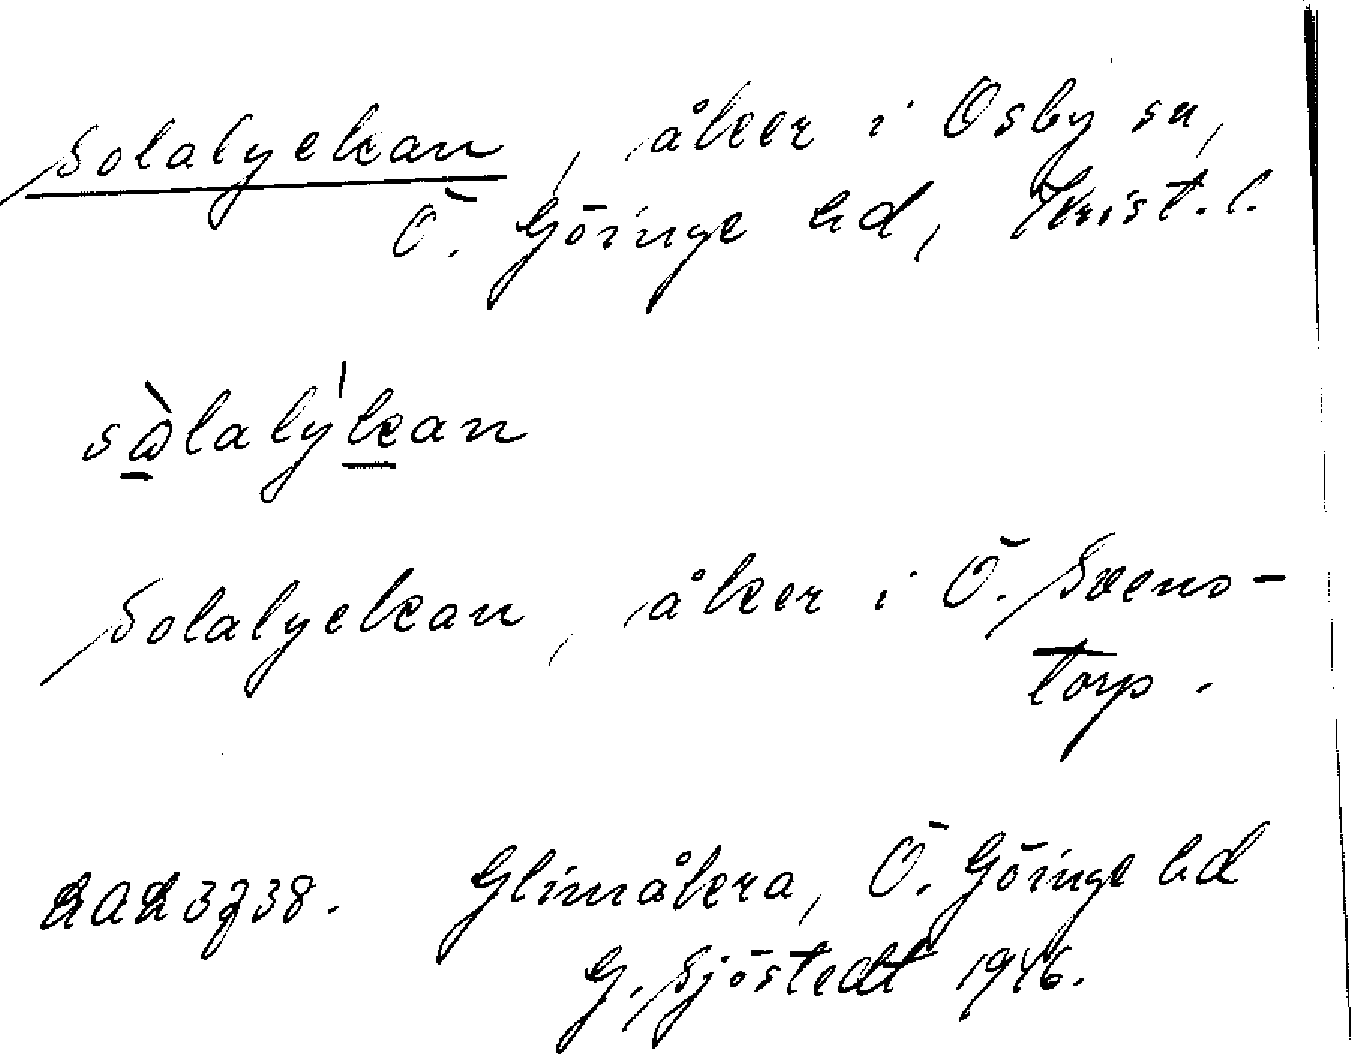 Solalyckan, åker i Osby sn,
Ö. Göinge hd, Krist. l.
sòlalỳkan
Solalyckan, åker i Ö. Svens-
torp.
3738. Glimåkra, Ö. Göinge hd
G. Sjöstedt 1946.